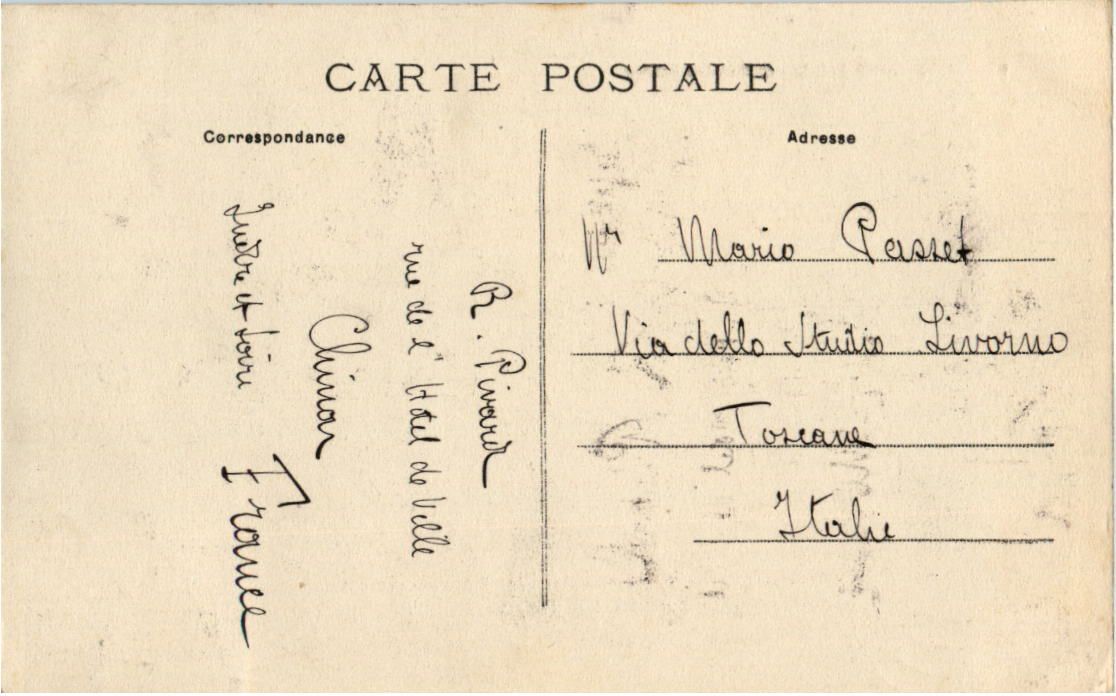 CARTE POSTALE
Correspondance
Adresse
R. Pivard
rue de l'Hotel de Ville
Chinon
et Loire
France
Mr Mario Passet
Via dello Studio Livorno
Toscane
Italie